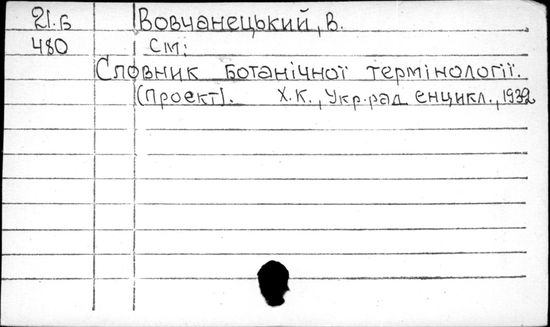 21.Б Вовчанецький, В.
480 См:
Словник ботанічної термінології.
(Проект). Х.К., Укр.рад енцикл., 1932